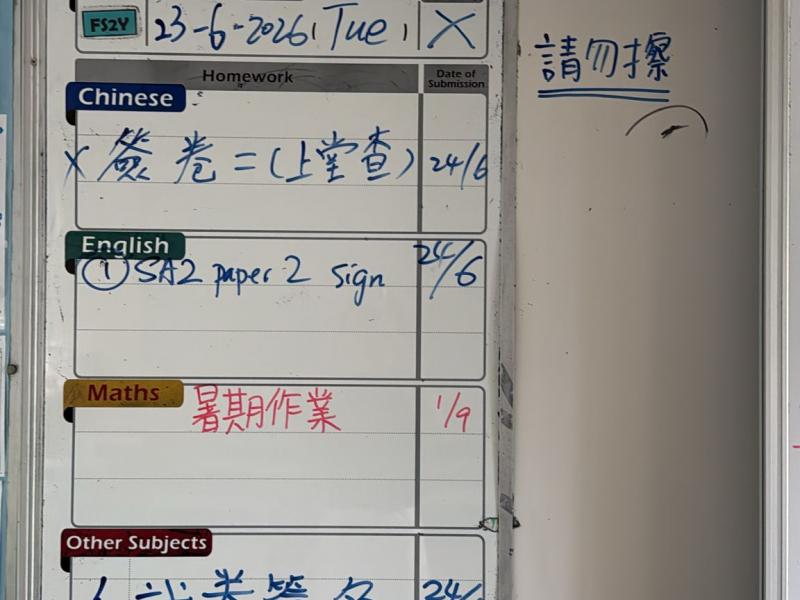 FS2Y 23-6-2026, Tue, X
請勿擦
Homework Date of Submission
Chinese
X 簽卷二(上堂查) 24/6
English
① SA2 paper 2 sign 24/6
Maths
暑期作業 1/9
Other Subjects